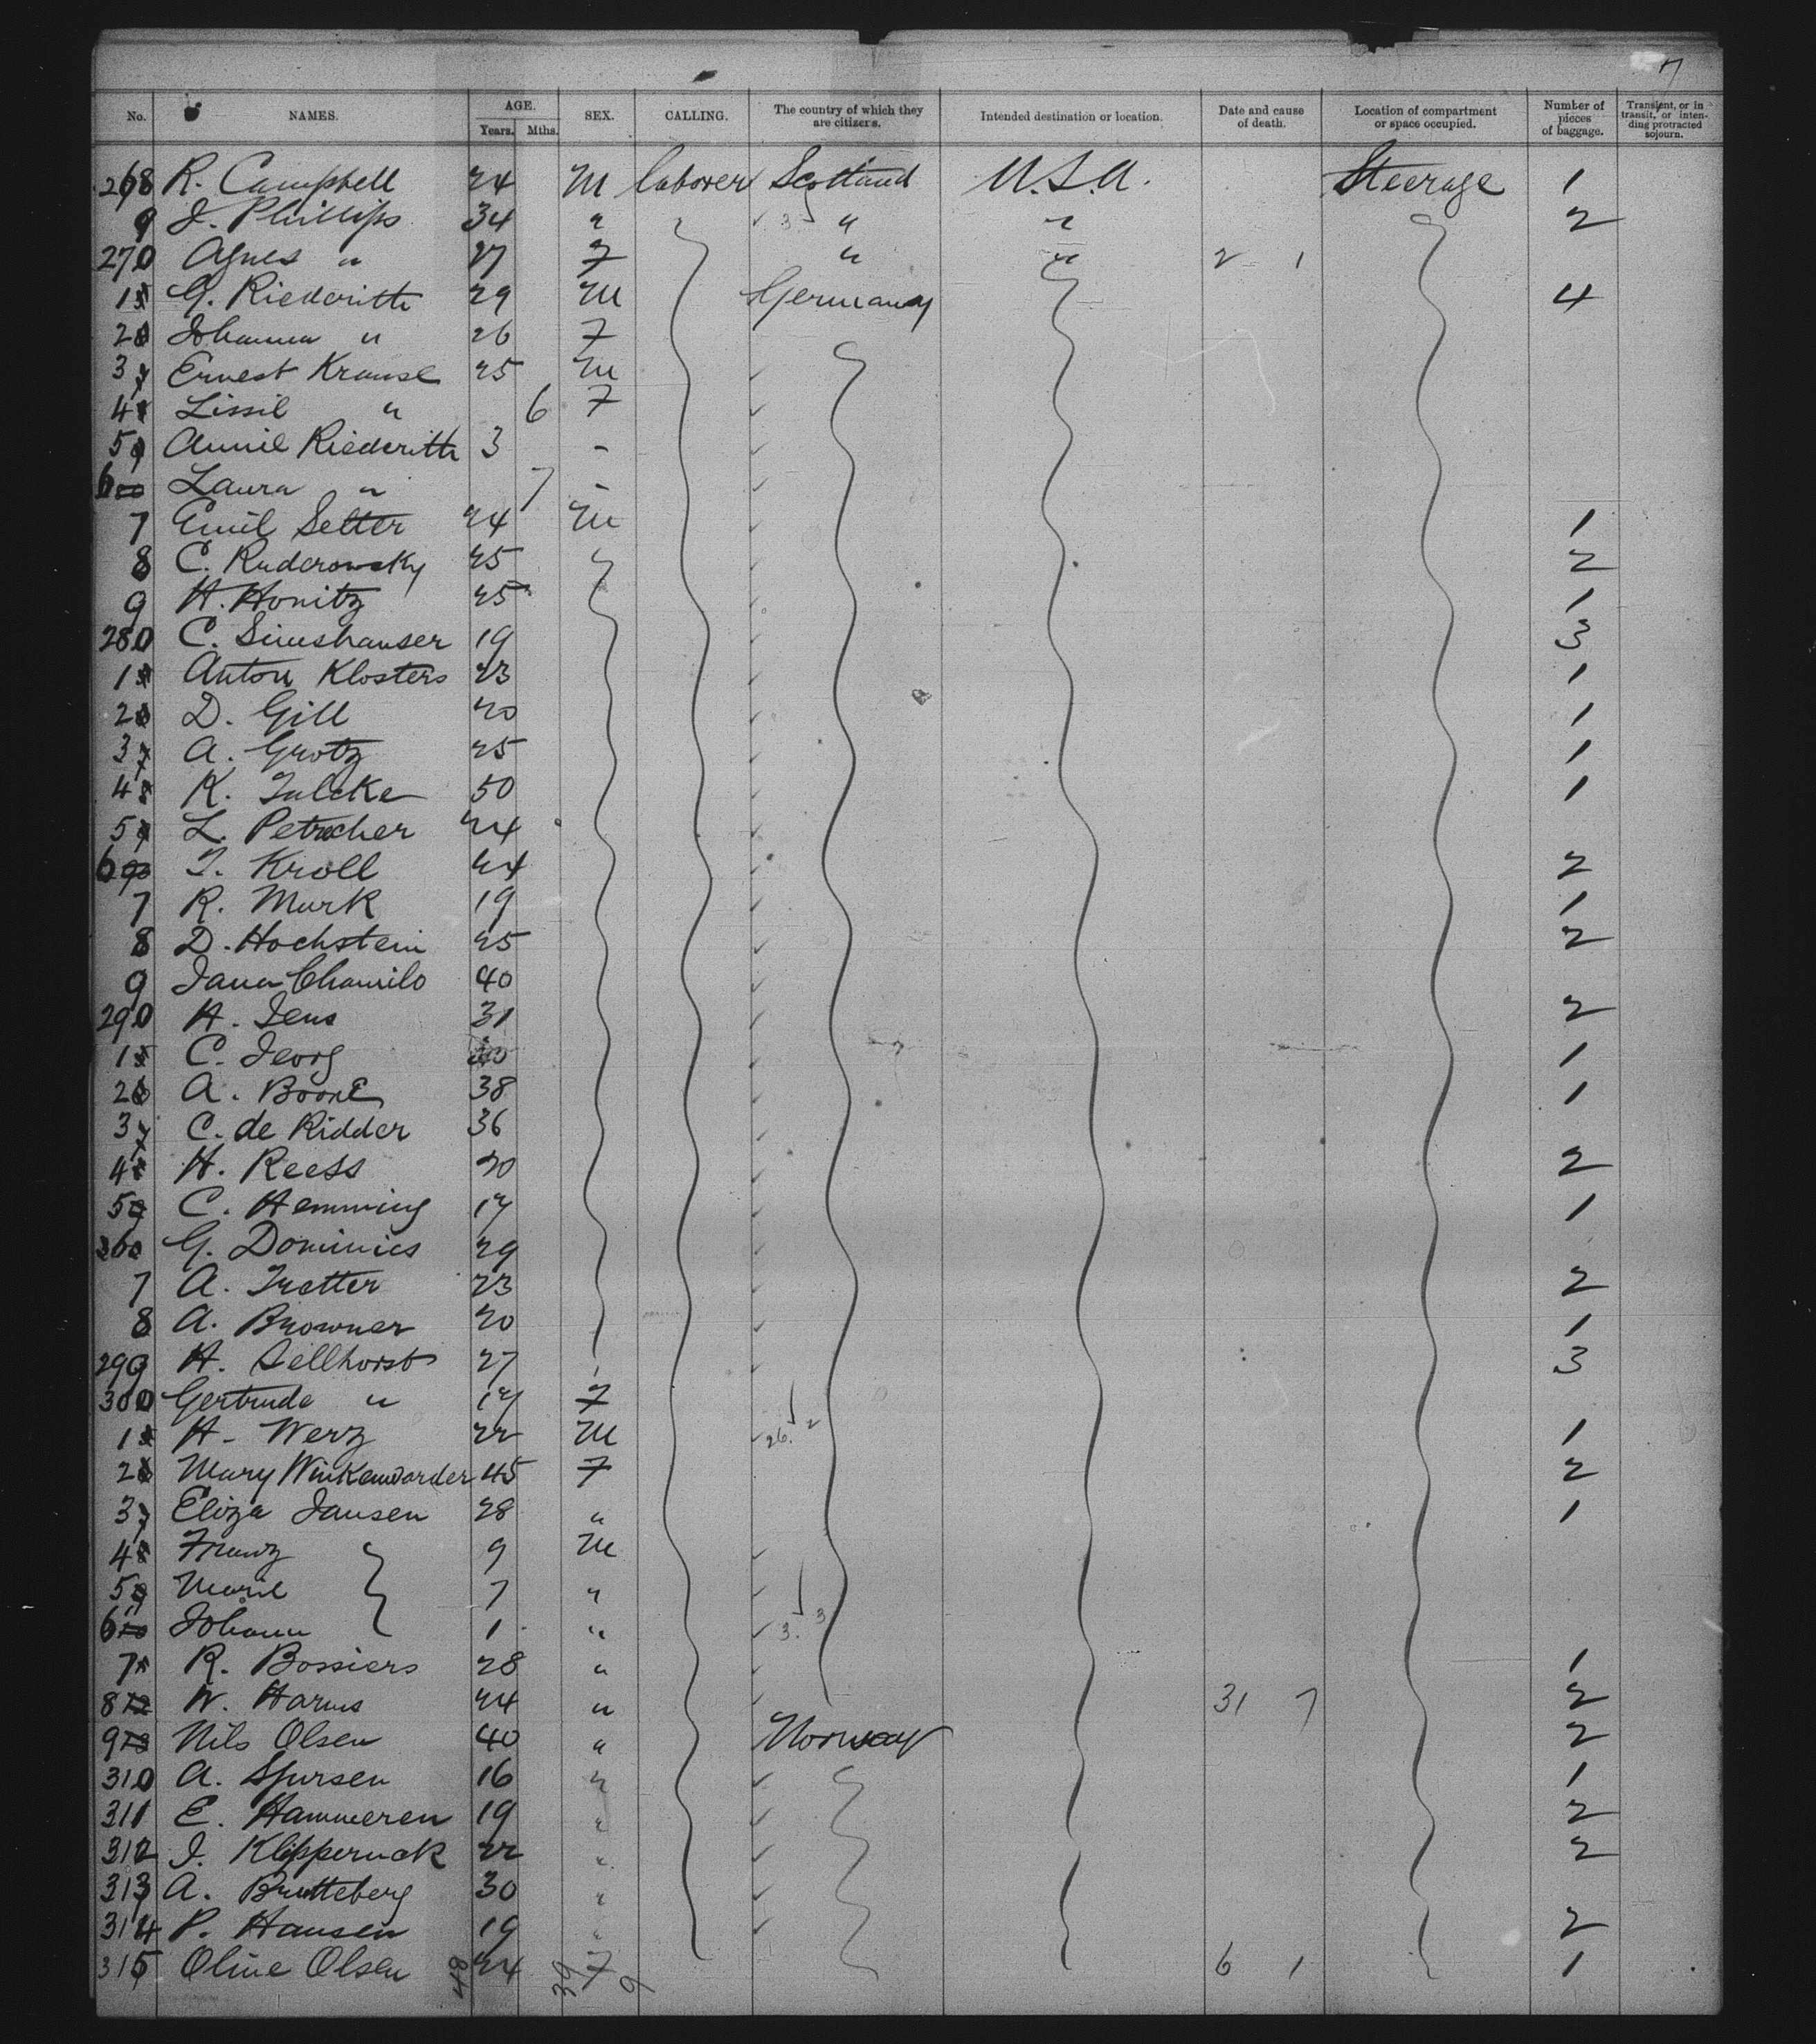 7
No. NAMES. AGE. Years. Mths. SEX. CALLING. The country of which they are citizens. Intended destination or location. Date and cause of death. Location of compartment or space occupied. Number of pieces of baggage. Transient, or in transit, or intending protracted sojourn.
268 R. Campbell 24 M laborer Scotland U.S.A. Steerage 1
9 J. Phillips 34 " 3 " " 2
270 Agnes " 27 F " " 2 1
1 G. Riederith 29 M Germany 4
2 Johanna " 26 F
3 Ernest Krause 25 M
4 Lissil " 6 F
5 Annie Riederith 3 -
6 Laura " 7 -
7 Emil Setter 24 M 1
8 C. Ruderowsky 25 2
9 H. Honitz 25 1
280 C. Simshauser 19 3
1 Anton Klosters 23 1
2 D. Gill 20 1
3 A. Grotz 25 1
4 K. Tulcke 50 1
5 L. Petracher 24
6 T. Kroll 24 2
7 R. Murk 19 1
8 D. Hochstein 25 2
9 Jana Chamilo 40
290 H. Jens 31 2
1 C. Jeorg 1
2 A. Boone 38 1
3 C. de Ridder 36
4 H. Reess 20 2
5 C. Hemming 17 1
6 G. Dominics 29
7 A. Tretter 23 2
8 A. Browner 20 1
299 H. Sellhorst 27 3
300 Gertrude " 17 F
1 H. Werz 22 M 26. 2 1
2 Mary Winkenwarder 45 F 2
3 Eliza Jansen 28 " 1
4 Franz 9 M
5 Marie 7 "
6 Johann 1 " 3. 3
7 R. Bossiers 28 " 1
8 W. Harms 24 " 31 7 2
9 Nils Olsen 40 " Norway 2
310 A. Spursen 16 " 1
311 E. Hammeren 19 " 2
312 J. Klippernak 22 " 2
313 A. Brutteberg 30 "
314 P. Hansen 19 " 2
315 Oline Olsen 24 F 6 1 1
48 39 9